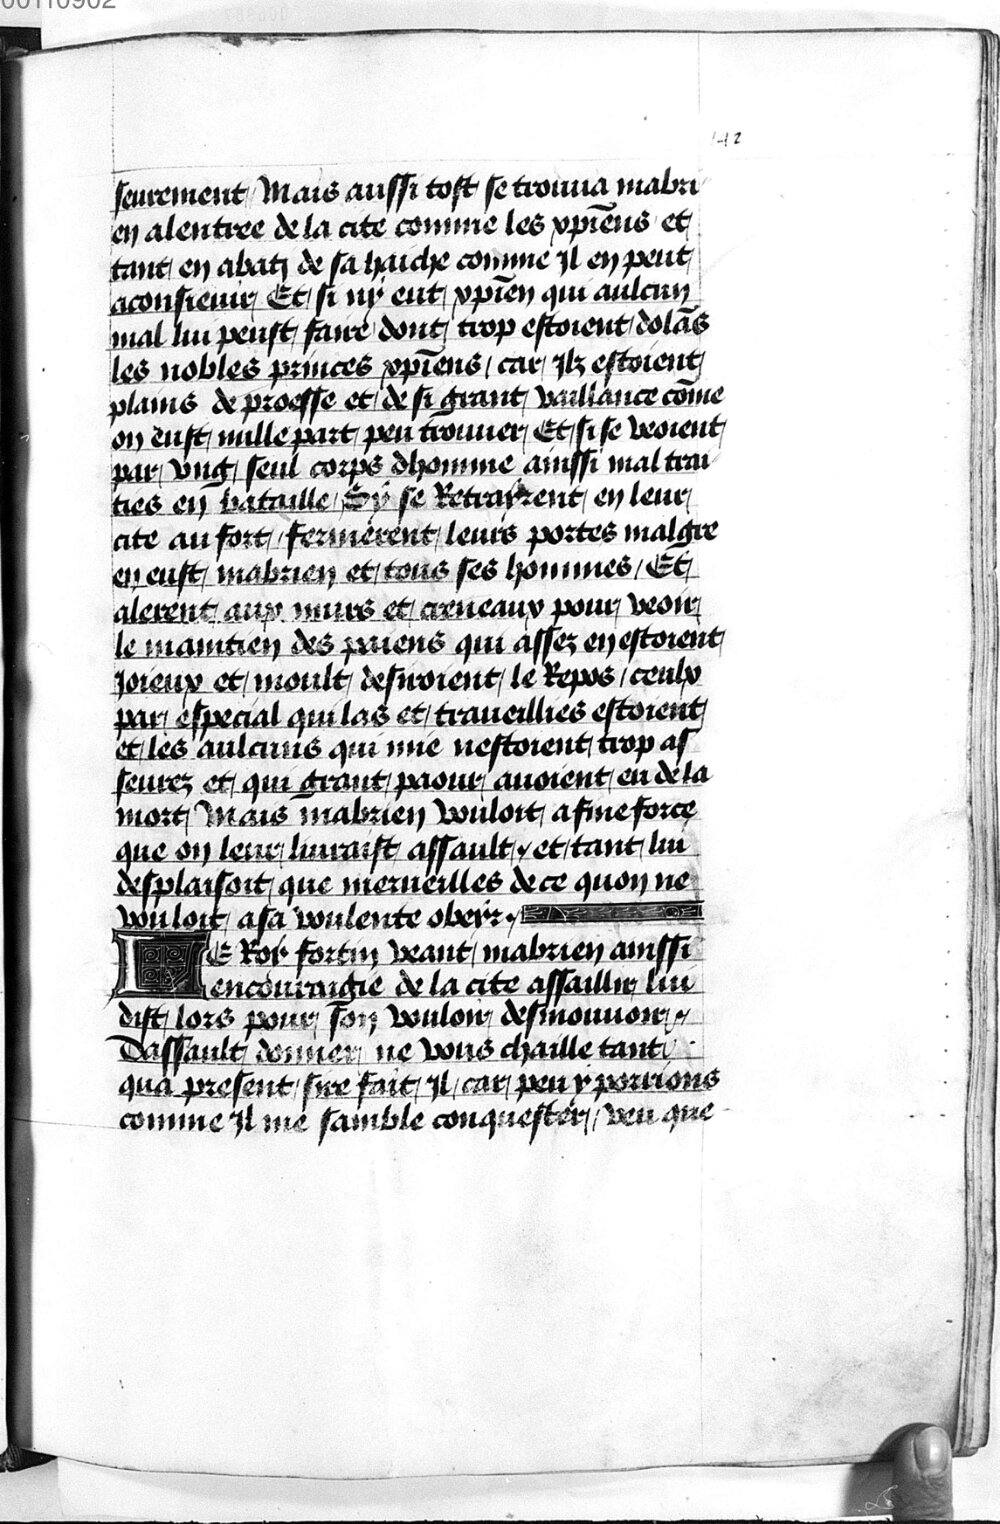 00110902
142
seurement / Mais aussi tost se trouua mabri
en alentree de la cite comme les xpiēns et
tant en abati de sa haiche comme Il en peut
aconsieuir Et si ny eut xpiēn qui aulcun
mal lui peust faire dont trop estoient dolās
les nobles princes xpiēns / car Ilz estoient
plains de proesse et de si grant vaillance cōme
on eust nulle part peu trouuer Et si se veoient
par vng seul corps dhomme ainssi mal trai
ties en bataille / Sy se Retrayrent en leur
cite au fort / fermerent leurs portes malgre
en eust mabrien et tous ses hommes / Et
alerent aux murs et creneaux pour veoir
le maintien des paiens qui assez en estoient
Joieux et moult desiroient le Repos / ceulx
par especial qui las et traueillies estoient
et les aulcuns qui mie nestoient trop as
seurez et qui grant paour auoient en de la
mort / Mais mabrien vouloit a fine force
que on leur liuraist assault / et tant lui
desplaisoit que merueilles de ce quon ne
vouloit a sa voulente obeyr /
LE Roy fortin veant mabrien ainssi
encouraigie de la cite assaillir lui
dist lors pour son vouloir desmouuoir /
Dassault donner ne vous chaille tant
qua present sire fait Il / car peu y porrions
comme Il me samble conquester / veu que